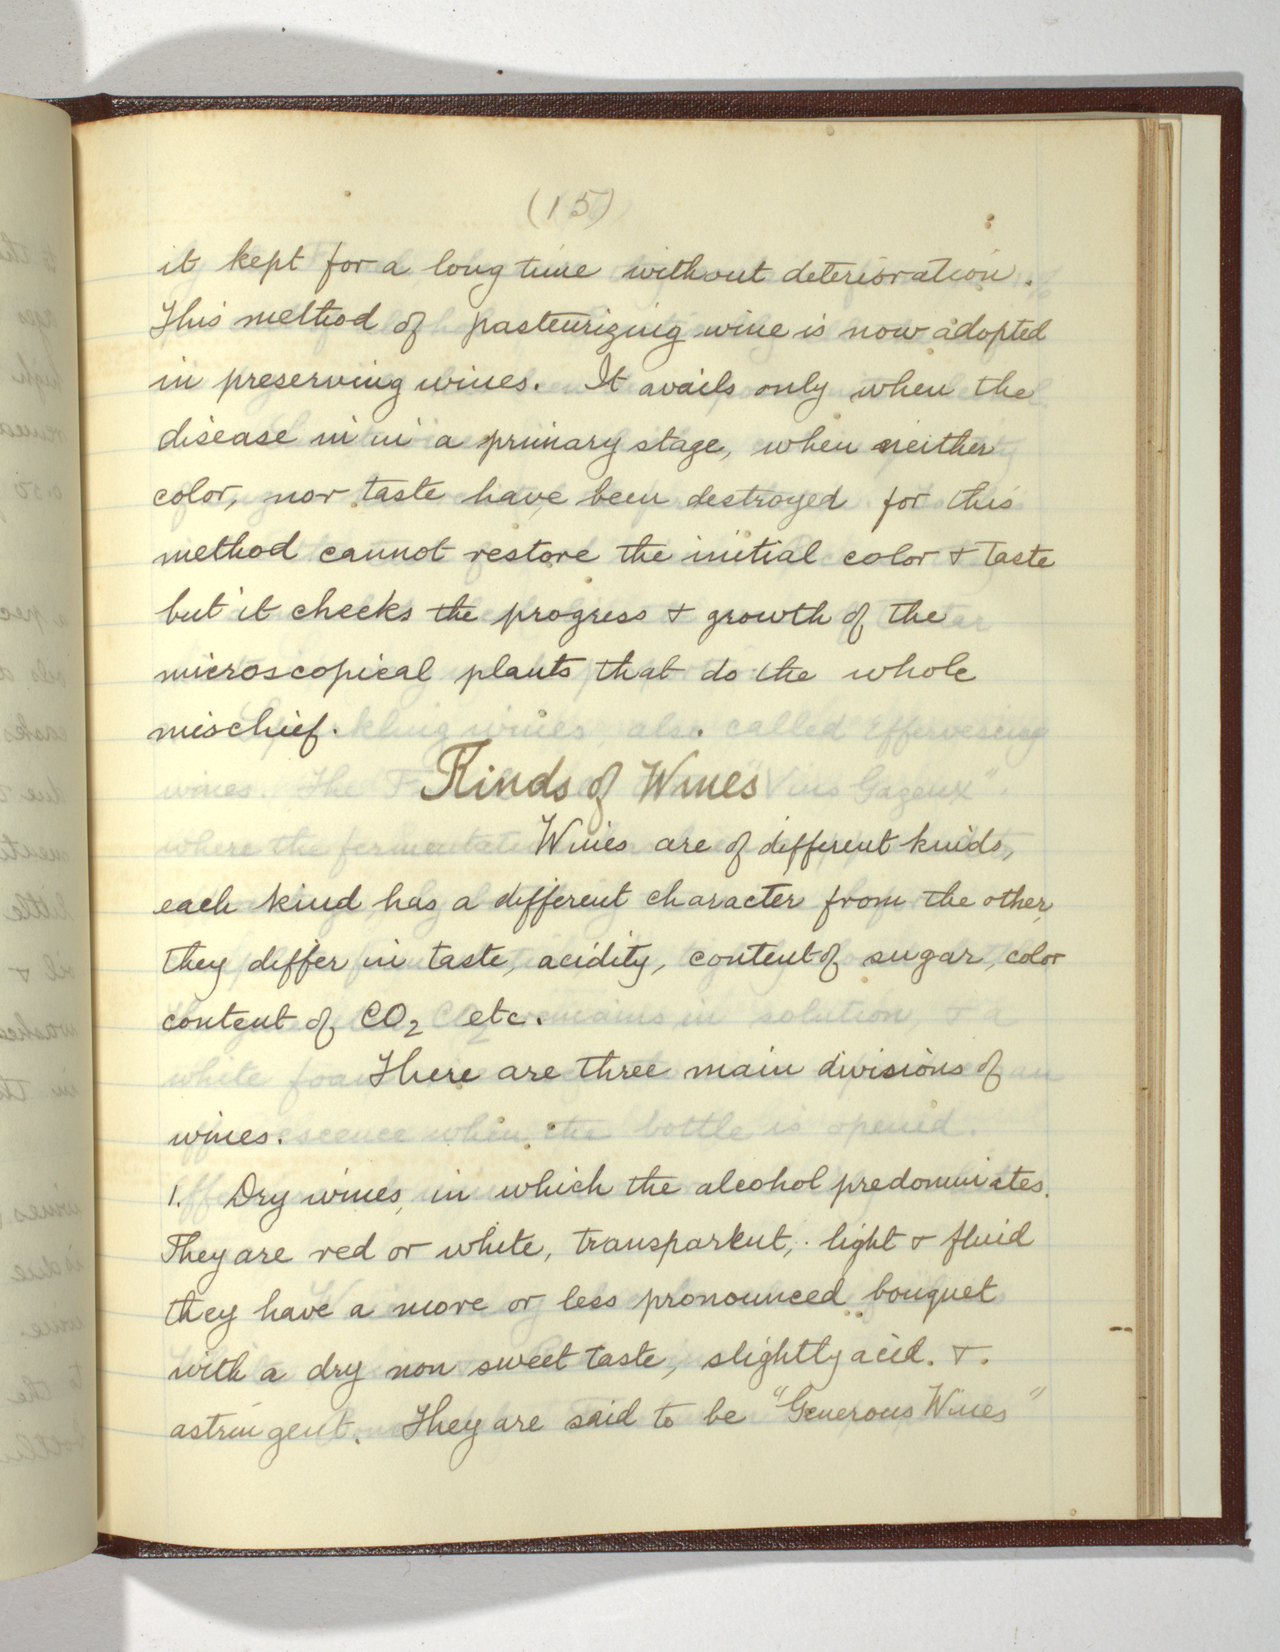 (15)
it kept for a long time without deterioration.
This method of pasteurizing wine is now adopted
in preserving wines. It avails only when the
disease in in a primary stage, when neither
color, nor taste have been destroyed for this
method cannot restore the initial color & taste
but it checks the progress & growth of the
microscopical plants that do the whole
mischief.
Kinds of Wines
Wines are of different kinds,
each kind has a different character from the other,
they differ in taste, acidity, content of sugar, color
content of CO2 etc.
There are three main divisions of
wines.
1. Dry wines, in which the alcohol predominates.
They are red or white, transparent, light & fluid
they have a more or less pronounced bouquet
with a dry non sweet taste, slightly acid. &.
astringent. They are said to be "Generous Wines"